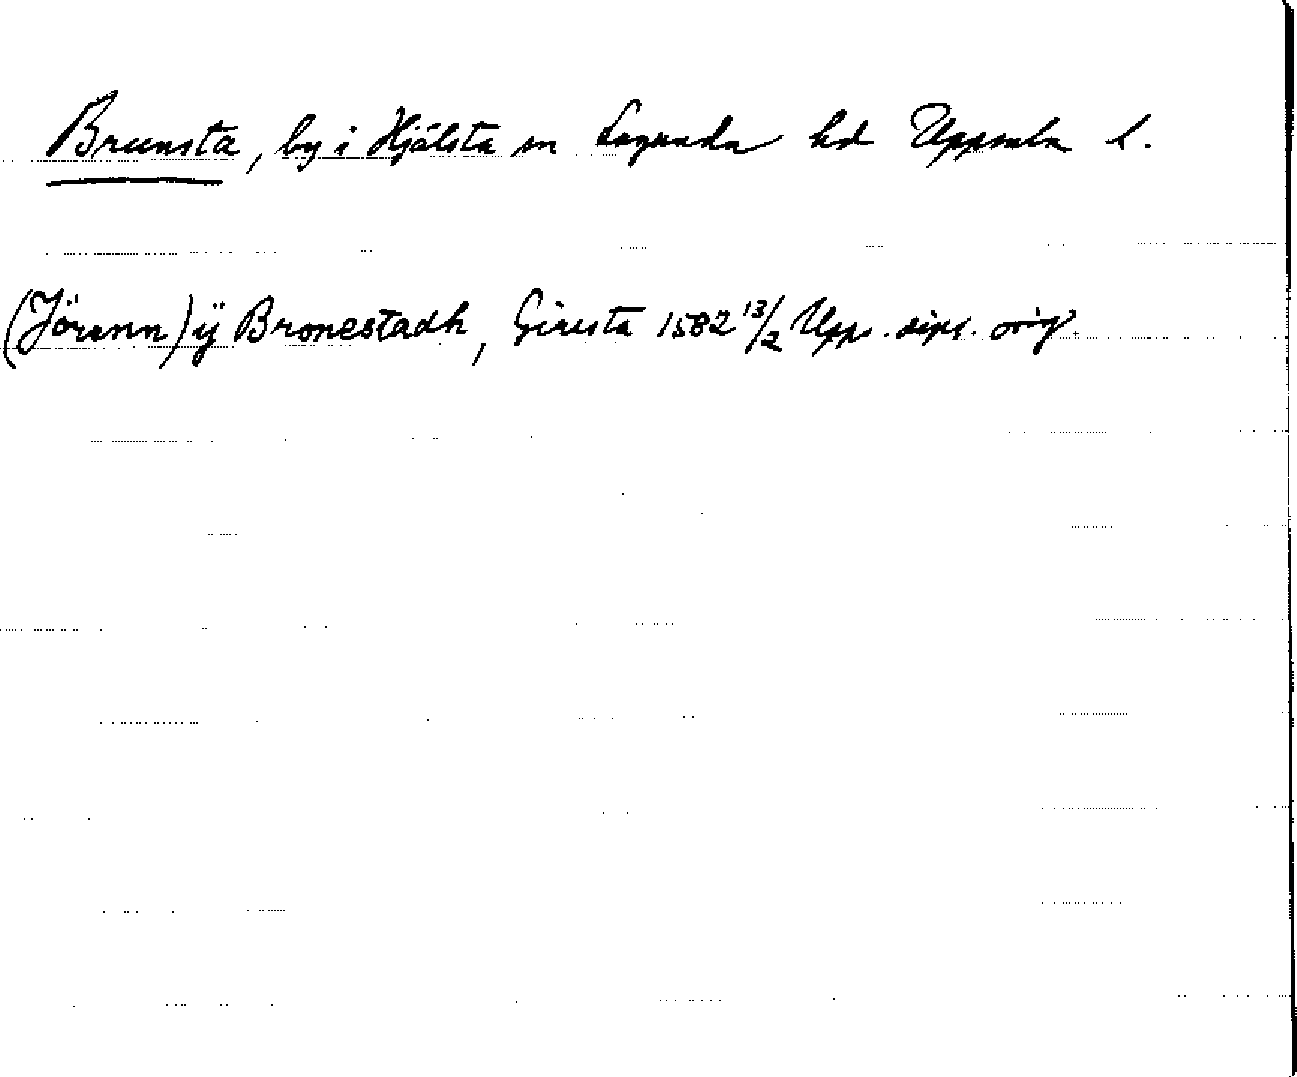 Brunsta, by i Hjälsta sn Lagunda hd Uppsala l.
(Jörann) ÿ Bronestadh, Girista 1582 13/2 Upps. dipl. orig.